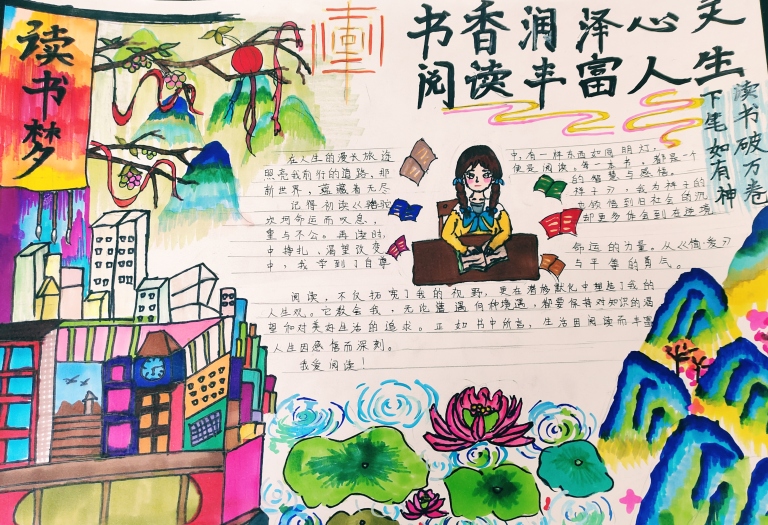 读书梦
书香润泽心灵
阅读丰富人生
读书破万卷
下笔如有神
在人生的漫长旅途中,有一样东西如同明灯,
照亮我前行的道路,那便是阅读。每一本书,都是一个
新世界,蕴藏着无尽的智慧与感悟。
记得初读《骆驼祥子》,我为祥子的
坎坷命运而叹息,也领悟到旧社会的沉
重与不公。再读时,却更多体会到在逆境
中挣扎、渴望改变命运的力量。从《简·爱》
中,我学到了自尊与平等的勇气。
阅读,不仅拓宽了我的视野,更在潜移默化中塑造了我的
人生观。它教会我,无论遭遇何种境遇,都要保持对知识的渴
望和对美好生活的追求。正如书中所言,生活因阅读而丰富
人生因感悟而深刻。
我爱阅读!